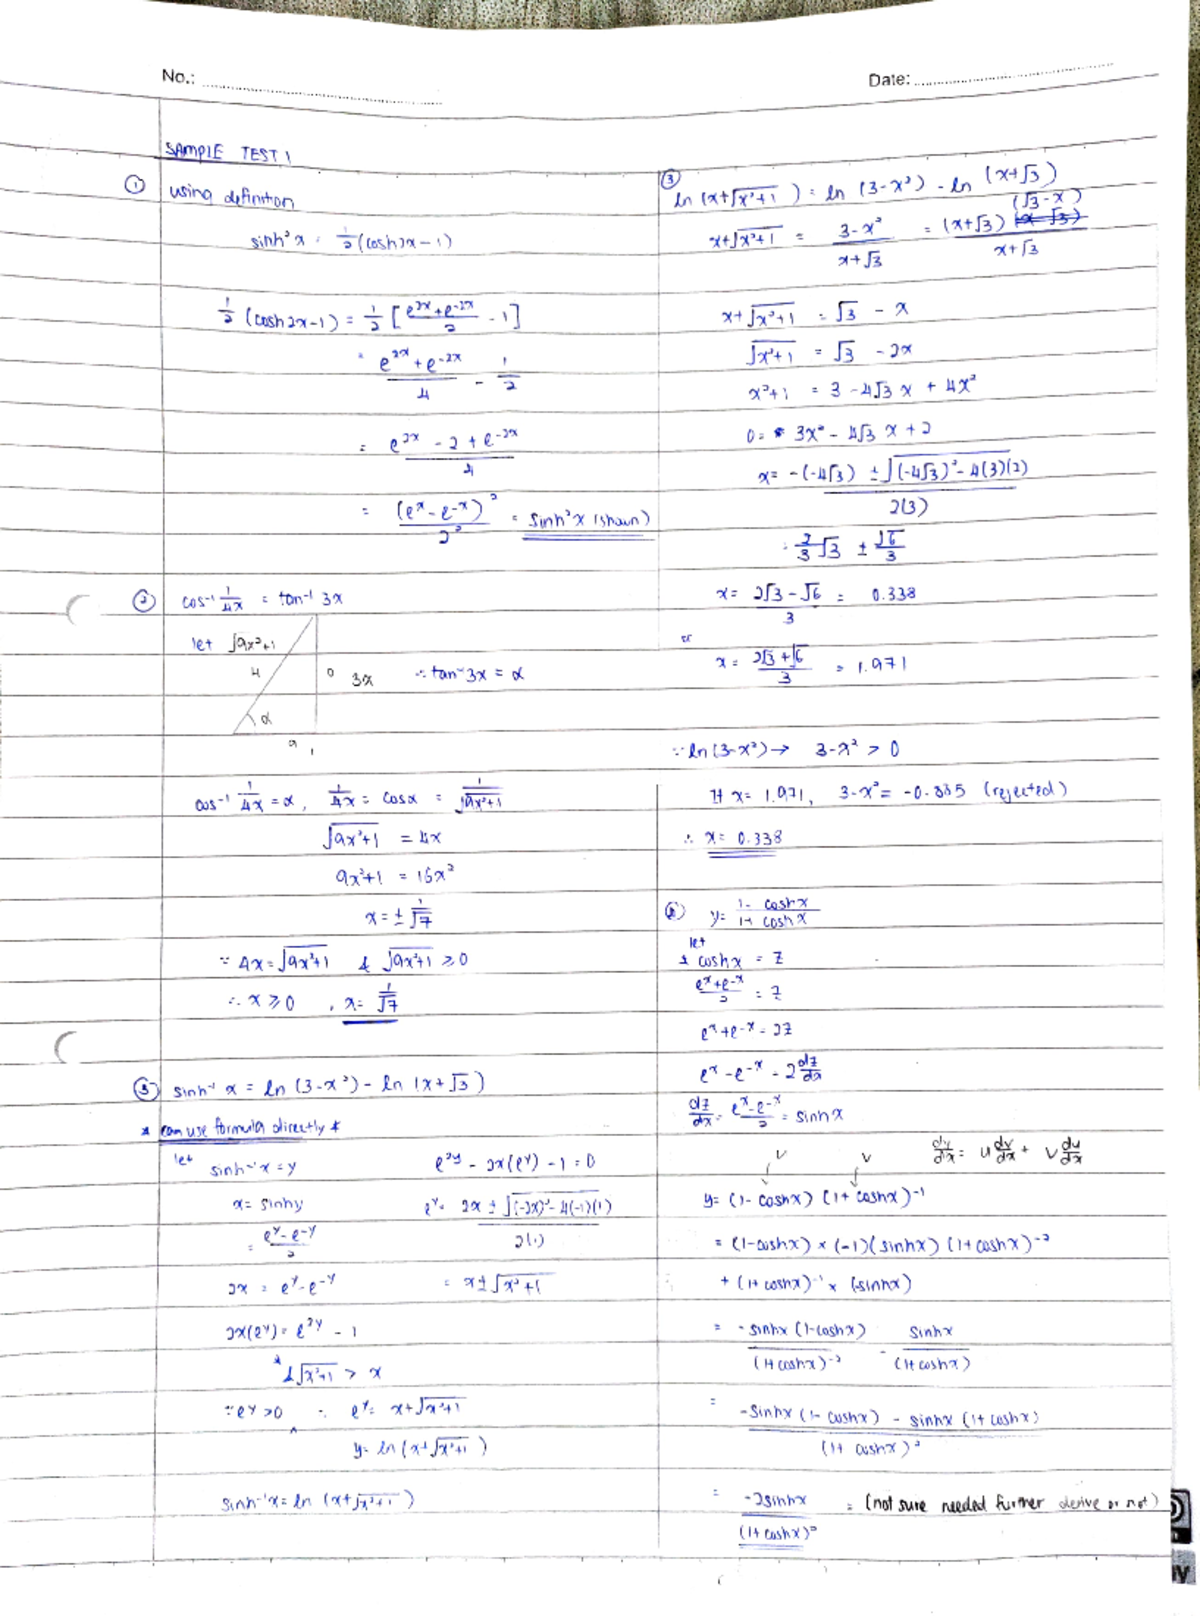 No.:
Date:
SAMPLE TEST 1
① using definition
sinh²x = 1/2 (cosh2x - 1)
1/2 (cosh2x - 1) = 1/2 [ (e^2x + e^-2x)/2 - 1 ]
= (e^2x + e^-2x)/4 - 1/2
= (e^2x - 2 + e^-2x)/4
= (e^x - e^-x)²/2² = sinh²x (shown)
② cos⁻¹ 1/4x = tan⁻¹ 3x
let √9x²+1
H
O 3x
∴ tan⁻¹3x = α
α
a 1
cos⁻¹ 1/4x = α, 1/4x = cosα = 1/√9x²+1
√9x²+1 = 4x
9x²+1 = 16x²
x = ± 1/√7
∵ 4x = √9x²+1 & √9x²+1 ≥ 0
∴ x ≥ 0, x = 1/√7
③ sinh⁻¹ x = ln (3-x²) - ln (x+√3)
* can use formula directly *
let sinh⁻¹x = y
x = sinhy
= (e^y - e^-y)/2
2x = e^y - e^-y
2x(e^y) = e^2y - 1
e^2y - 2x(e^y) - 1 = 0
e^y = (2x ± √(-2x)² - 4(-1)(1))/2(1)
= x ± √x²+1
* & √x²+1 > x
∵ e^y > 0 ∴ e^y = x+√x²+1
y = ln (x+√x²+1)
sinh⁻¹x = ln (x+√x²+1)
③ ln (x+√x²+1) = ln (3-x²) - ln (x+√3)
x+√x²+1 = (3-x²)/(x+√3) = (x+√3)(√3-x)/(x+√3)
x+√x²+1 = √3 - x
√x²+1 = √3 - 2x
x²+1 = 3 - 4√3 x + 4x²
0 = 3x² - 4√3 x + 2
x = (-(-4√3) ± √(-4√3)² - 4(3)(2))/2(3)
= 2/3 √3 ± √6/3
x = (2√3 - √6)/3 = 0.338
or
x = (2√3 + √6)/3 = 1.971
∵ ln (3-x²) → 3-x² > 0
If x = 1.971, 3-x² = -0.885 (rejected)
∴ x = 0.338
y = (1 - coshx)/(1 + coshx)
let
coshx = z
(e^x + e^-x)/2 = z
e^x + e^-x = 2z
e^x - e^-x = 2 dz/dx
dz/dx = (e^x - e^-x)/2 = sinhx
U V dy/dx = u dv/dx + v du/dx
y = (1 - coshx) (1 + coshx)⁻¹
= (1 - coshx) × (-1)(sinhx) (1 + coshx)⁻²
+ (1 + coshx)⁻¹ × (-sinhx)
= -sinhx (1-coshx)/(1+coshx)⁻² - sinhx/(1+coshx)
= (-sinhx (1 - coshx) - sinhx (1 + coshx))/(1 + coshx)²
= -2sinhx/(1+coshx)² = (not sure needed further derive or not)